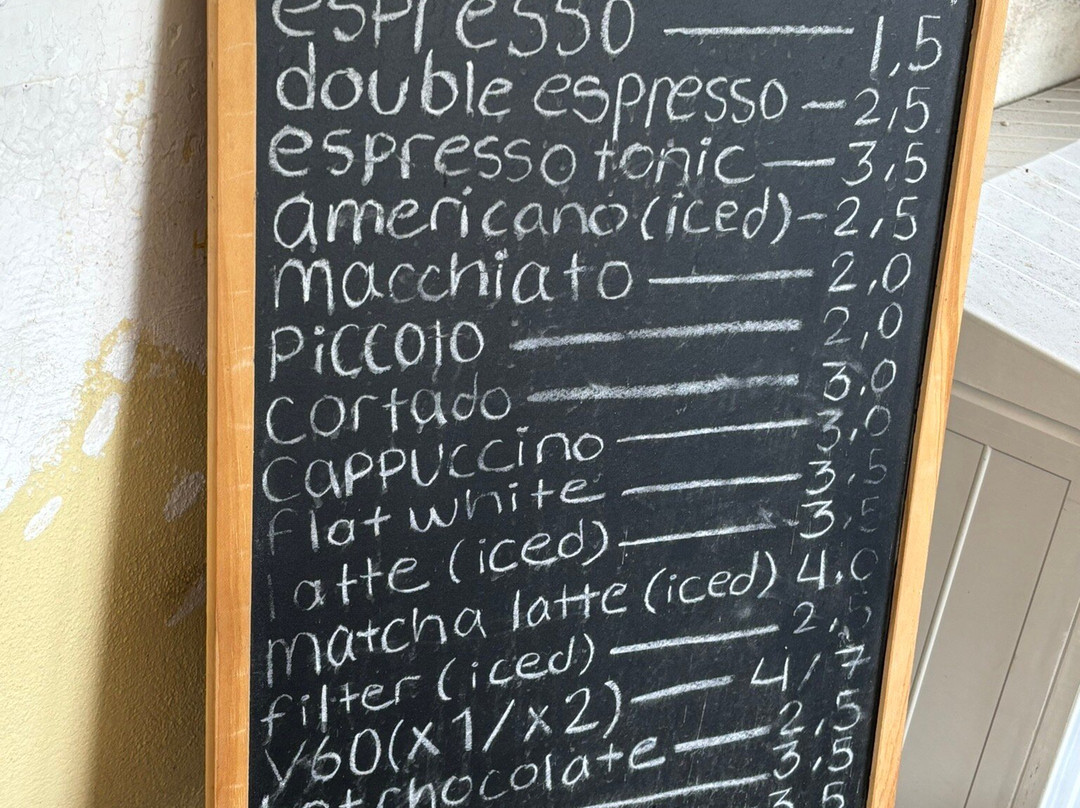 espresso — 1,5
double espresso — 2,5
espresso tonic — 3,5
americano (iced) - 2,5
macchiato — 2,0
piccoto — 2,0
cortado — 3,0
cappuccino — 3,0
flat white — 3,5
latte (iced) — 3,5
matcha latte (iced) 4,0
filter (iced) — 2,5
V60 (x1/x2) — 4/7
hot chocolate — 2,5
— 3,5
3,5